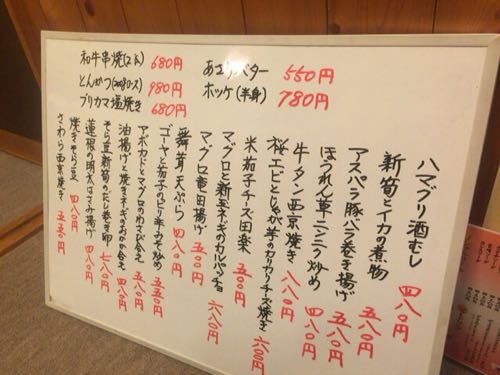 和牛串焼(2本) 680円
とんかつ(200gロース) 980円
ブリカマ塩焼き 680円
あさりバター 550円
ホッケ(半身) 780円
ハマグリ酒むし 四八〇円
新筍とイカの煮物 五八〇円
アスパラ豚バラ巻き揚げ 五八〇円
ほうれん草ニンニク炒め 四八〇円
牛タン西京焼き 八八〇円
桜エビとじゃが芋のカリカリチーズ焼き 六八〇円
米茄子チーズ田楽 五〇〇円
マグロと新玉ネギのカルパッチョ 六八〇円
マグロ竜田揚げ 五〇〇円
舞茸天ぷら 四八〇円
ゴーヤと茄子のピリ辛みそ炒め 五五〇円
アボカドとマグロのわさび合え 五八〇円
油揚げと焼きネギのおかか合え 四八〇円
そら豆新筍のだし巻き卵 七八〇円
蓮根の明太はさみ揚げ 五八〇円
焼きそら豆 四八〇円
さわら西京焼き 五五〇円